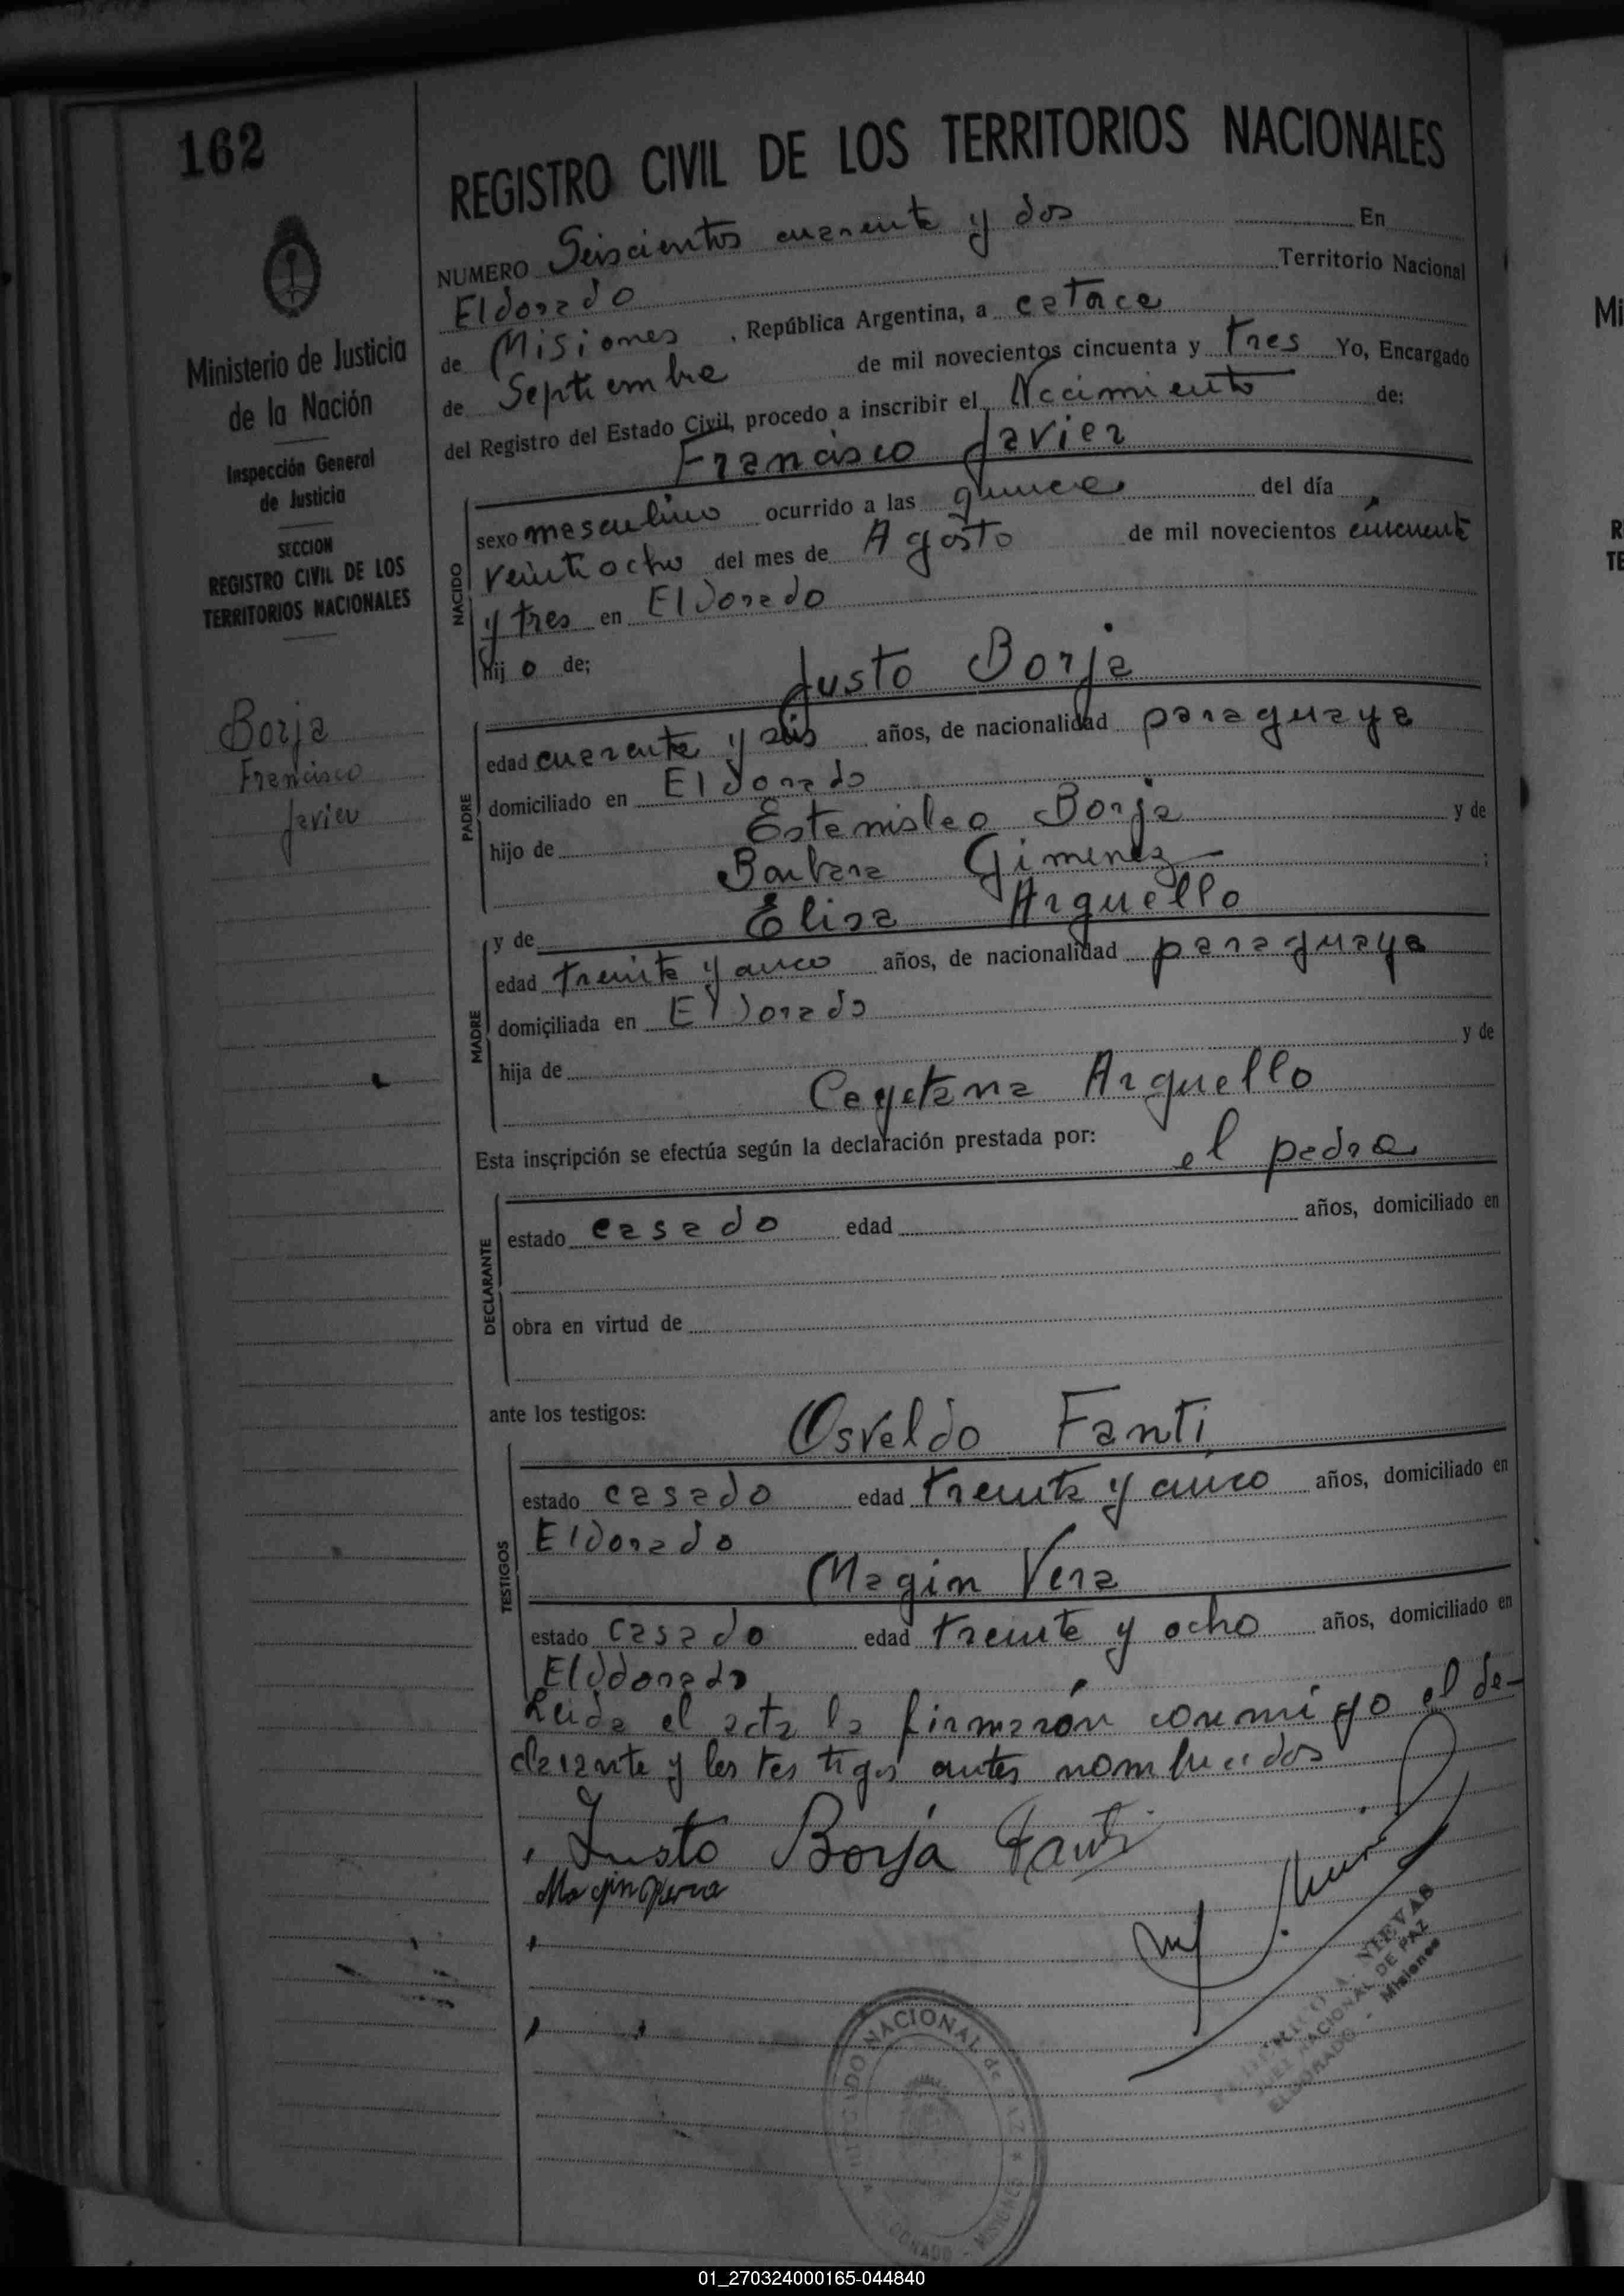 162
REGISTRO CIVIL DE LOS TERRITORIOS NACIONALES
Ministerio de Justicia
de la Nación
Inspección General
de Justicia
SECCION
REGISTRO CIVIL DE LOS
TERRITORIOS NACIONALES
Borja
Francisco
Javier
NUMERO Seiscientos cuarenta y dos En
Eldorado Territorio Nacional
de Misiones, República Argentina, a catorce
de Septiembre de mil novecientos cincuenta y tres Yo, Encargado
del Registro del Estado Civil, procedo a inscribir el Nacimiento de:
Francisco Javier
NACIDO
sexo masculino ocurrido a las quince del día
veintiocho del mes de Agosto de mil novecientos cincuenta
y tres en Eldorado
hijo de; Justo Borja
PADRE
edad cuarenta y seis años, de nacionalidad paraguaya
domiciliado en Eldorado
hijo de Estanislao Borja y de
Barbara Gimenez;
y de Elisa Arguello
MADRE
edad treinta y cinco años, de nacionalidad paraguaya
domiciliada en Eldorado
hija de y de
Cayetana Arguello
Esta inscripción se efectúa según la declaración prestada por: el padre
DECLARANTE
estado casado edad años, domiciliado en
obra en virtud de
ante los testigos: Osvaldo Fanti
TESTIGOS
estado casado edad treinta y cinco años, domiciliado en
Eldorado
Magin Vera
estado casado edad treinta y ocho años, domiciliado en
Elddorado
Leida el acta la firmarón conmigo el de-
clarante y los testigos antes nombrados
Justo Borja Fanti
Magin Vera
A. NIEVAS
JUEZ NACIONAL DE PAZ
ELDORADO - Misiones
NACIONAL de
01_270324000165-044840